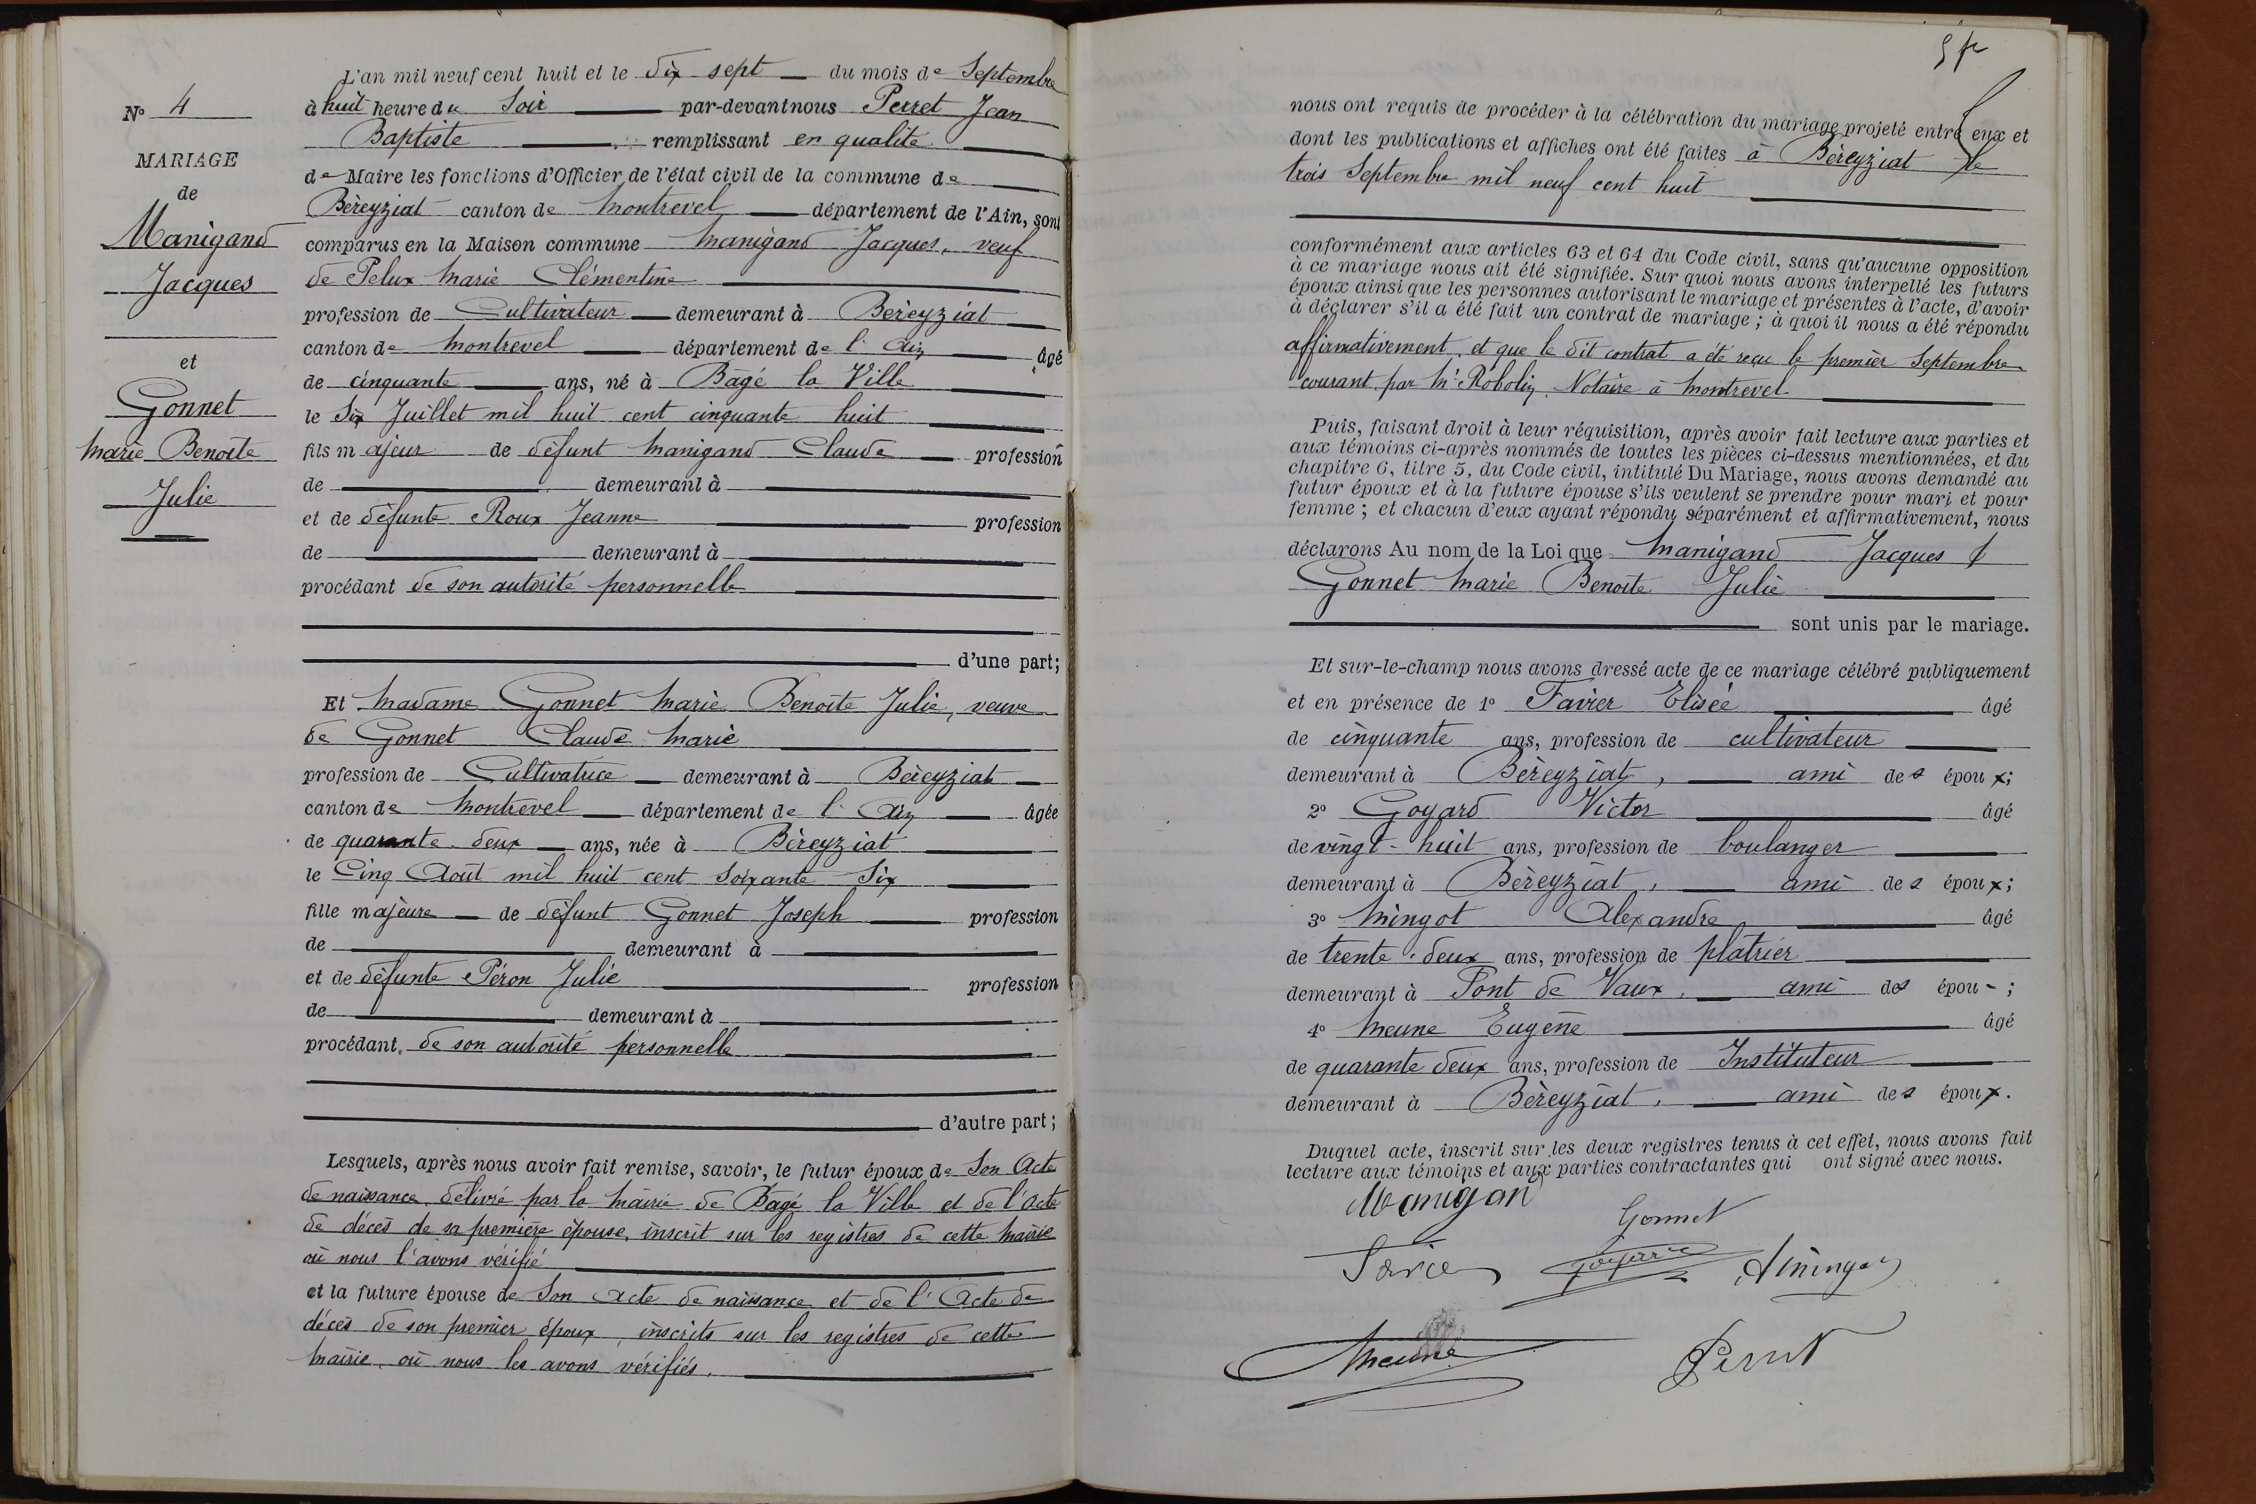 N° 4
MARIAGE
de
Manigand
Jacques
et
Gonnet
Marie Benoîte
Julie
L'an mil neuf cent huit et le dix sept du mois de Septembre
à huit heure du Soir par-devant nous Perret Jean
Baptiste remplissant en qualité
de Maire les fonctions d'Officier de l'état civil de la commune de
Béreyziat canton de Montrevel département de l'Ain, sont
comparus en la Maison commune Manigand Jacques, veuf
de Pelux Marie Clémentine
profession de Cultivateur demeurant à Béreyziat
canton de Montrevel département de l'Ain âgé
de cinquante ans, né à Bâgé la Ville
le Six Juillet mil huit cent cinquante huit
fils majeur de défunt Manigand Claude profession
de demeurant à
et de défunte Roux Jeanne profession
de demeurant à
procédant de son autorité personnelle
d'une part;
Et Madame Gonnet Marie Benoîte Julie, veuve
de Gonnet Claude Marie
profession de Cultivatrice demeurant à Béreyziat
canton de Montrevel département de l'Ain âgée
de quarante deux ans, née à Béreyziat
le Cinq Août mil huit cent Soixante Six
fille majeure de défunt Gonnet Joseph profession
de demeurant à
et de défunte Péron Julie profession
de demeurant à
procédant de son autorité personnelle
d'autre part;
Lesquels, après nous avoir fait remise, savoir, le futur époux de Son Acte
de naissance délivré par la Mairie de Bâgé la Ville et de l'Acte
de décès de sa première épouse, inscrit sur les registres de cette Mairie
où nous l'avons vérifié
et la future épouse de Son Acte de naissance et de l'Acte de
décès de son premier époux, inscrits sur les registres de cette
Mairie où nous les avons vérifiés.
nous ont requis de procéder à la célébration du mariage projeté entre eux et
dont les publications et affiches ont été faites à Béreyziat le
trois Septembre mil neuf cent huit
conformément aux articles 63 et 64 du Code civil, sans qu'aucune opposition
à ce mariage nous ait été signifiée. Sur quoi nous avons interpellé les futurs
époux ainsi que les personnes autorisant le mariage et présentes à l'acte, d'avoir
à déclarer s'il a été fait un contrat de mariage; à quoi il nous a été répondu
affirmativement, et que le dit contrat a été reçu le premier Septembre
courant par Mr Robolin, Notaire à Montrevel
Puis, faisant droit à leur réquisition, après avoir fait lecture aux parties et
aux témoins ci-après nommés de toutes les pièces ci-dessus mentionnées, et du
chapitre 6, titre 5, du Code civil, intitulé Du Mariage, nous avons demandé au
futur époux et à la future épouse s'ils veulent se prendre pour mari et pour
femme; et chacun d'eux ayant répondu séparément et affirmativement, nous
déclarons Au nom de la Loi que Manigand Jacques &
Gonnet Marie Benoîte Julie
sont unis par le mariage.
Et sur-le-champ nous avons dressé acte de ce mariage célébré publiquement
et en présence de 1° Favier Elisée âgé
de cinquante ans, profession de cultivateur
demeurant à Béreyziat, ami des époux;
2° Goyard Victor âgé
de vingt-huit ans, profession de boulanger
demeurant à Béreyziat, ami des époux;
3° Mingot Alexandre âgé
de trente-deux ans, profession de plâtrier
demeurant à Pont de Vaux, ami des épou-;
4° Meune Eugène âgé
de quarante deux ans, profession de Instituteur
demeurant à Béreyziat, ami des époux.
Duquel acte, inscrit sur les deux registres tenus à cet effet, nous avons fait
lecture aux témoins et aux parties contractantes qui ont signé avec nous.
Manigand
Gonnet
Favier Goyard A Mingot
Meune Perret